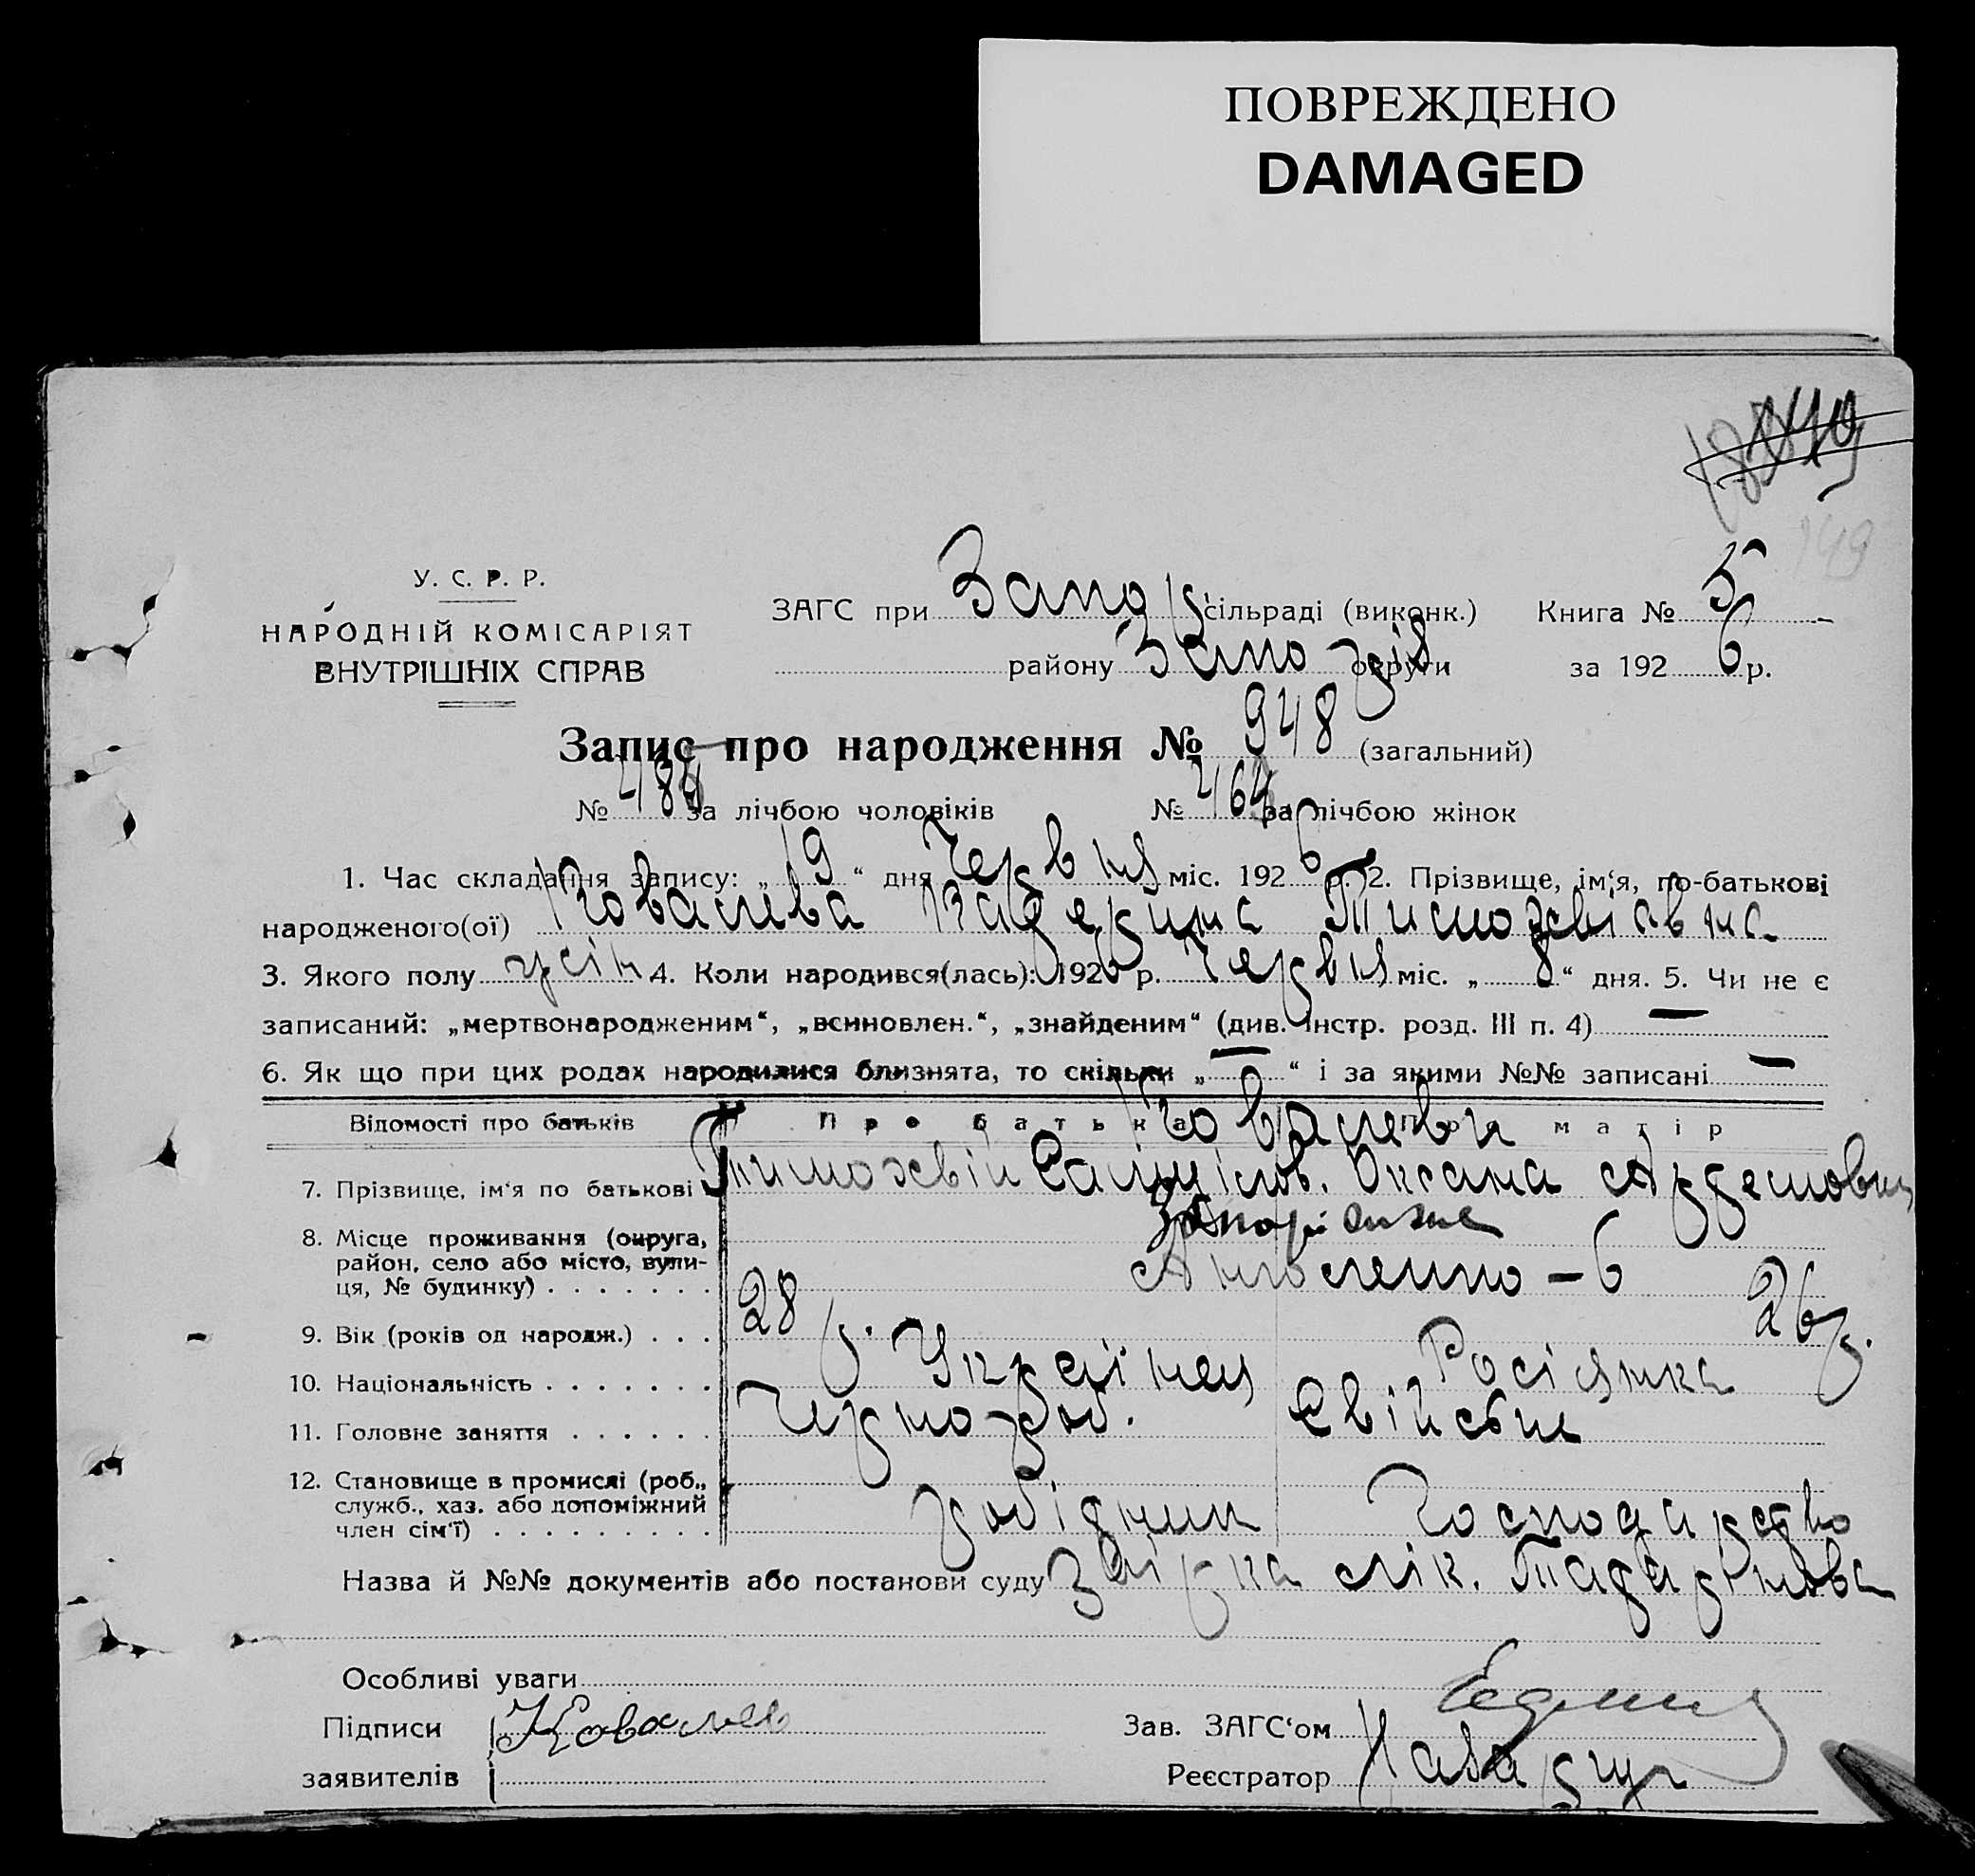 ПОВРЕЖДЕНО
DAMAGED
149
У. С. Р. Р.
НАРОДНІЙ КОМІСАРІЯТ
ВНУТРІШНІХ СПРАВ
ЗАГС при Запор сільраді (виконк.) Книга № 5
району Запоріз округи за 1926 р.
Запис про народження № 948 (загальний)
№ 484 за лічбою чоловіків № 464 за лічбою жінок
1. Час складання запису: „19“ дня Червня міс. 1926 р. 2. Прізвище, ім‘я, по-батькові
народженого(ої) Ковалева Тимофвіавна
3. Якого полу жін 4. Коли народився(лась): 1926 р. Червня міс. „8“ дня. 5. Чи не є
записаний: „мертвонародженим“, „всиновлен.“, „знайденим“ (див. інстр. розд. III п. 4) —
6. Як що при цих родах народилися близнята, то скільки „—“ і за якими №№ записані —
Відомості про батьків Про батька Про матір
Ковалеви
7. Прізвище, ім‘я по батькові Тимофвій Оксана Артемовна
8. Місце проживання (округа, район, село або місто, вулиця, № будинку) Запоріжжя
– 6
9. Вік (років од народж.) 28 р. 26 р.
10. Національність Українец Росіянка
11. Головне заняття Чернороб. Свійське
12. Становище в промислі (роб., служб., хаз. або допоміжний член сім‘ї) робідник Господарство
Назва й №№ документів або постанови суду лік.
Особливі уваги
Підписи Ковалев Зав. ЗАГС‘ом
заявителів Реєстратор